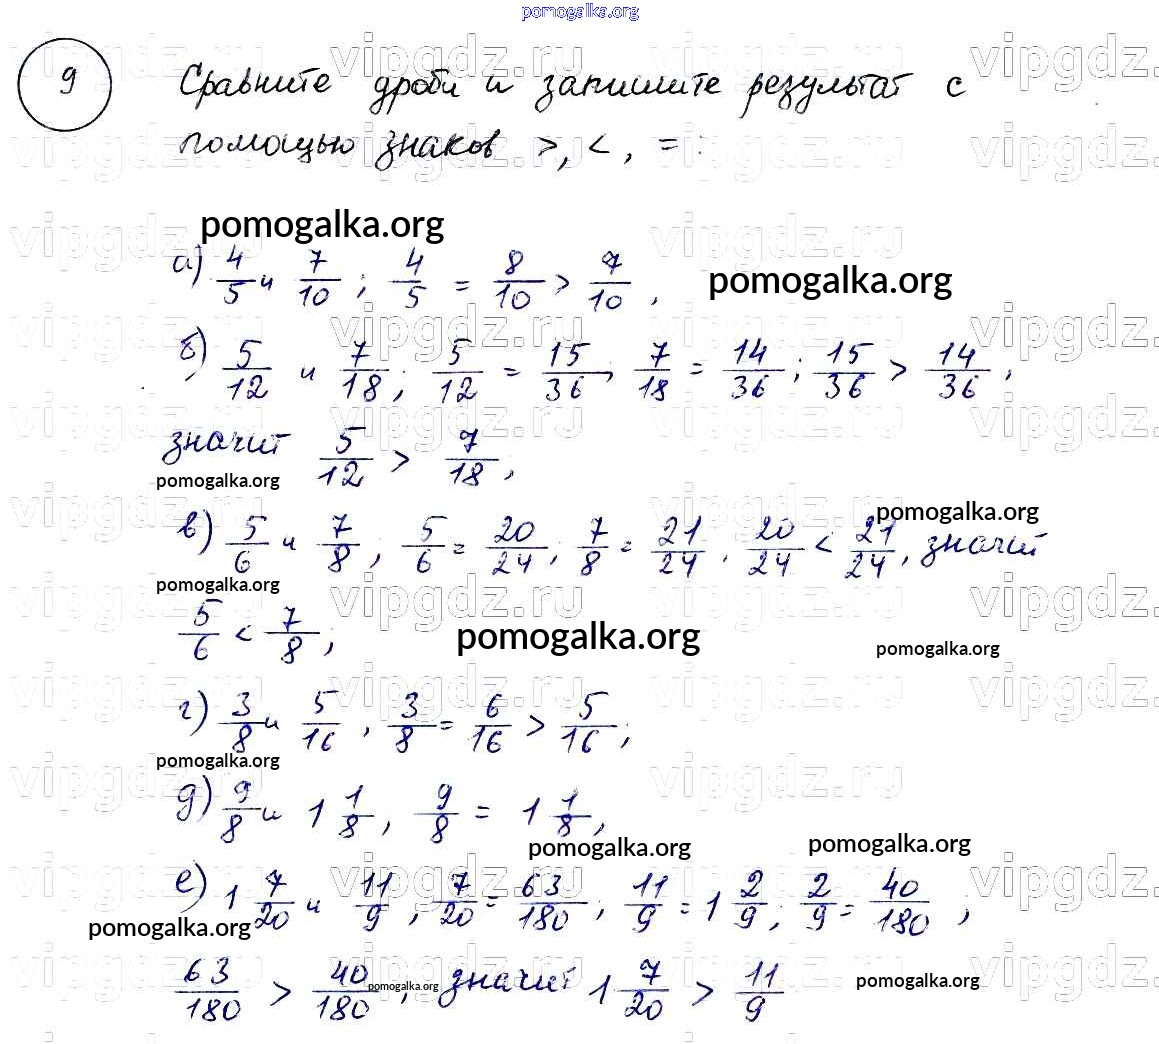 pomogalka.org
9 Сравните дроби и запишите результат с
помощью знаков >, <, = :
pomogalka.org
а) 4/5 и 7/10 ; 4/5 = 8/10 > 7/10 ,
pomogalka.org
б) 5/12 и 7/18 ; 5/12 = 15/36 , 7/18 = 14/36 ; 15/36 > 14/36 ,
значит 5/12 > 7/18 ,
pomogalka.org
в) 5/6 и 7/8 ; 5/6 = 20/24 ; 7/8 = 21/24 . 20/24 < 21/24 , значит
pomogalka.org
pomogalka.org
5/6 < 7/8 ;
pomogalka.org
pomogalka.org
г) 3/8 и 5/16 , 3/8 = 6/16 > 5/16 ;
pomogalka.org
д) 9/8 и 1 1/8 , 9/8 = 1 1/8 ,
pomogalka.org
pomogalka.org
е) 1 7/20 и 11/9 , 7/20 = 63/180 ; 11/9 = 1 2/9 ; 2/9 = 40/180 ,
pomogalka.org
63/180 > 40/180 , значит 1 7/20 > 11/9
pomogalka.org
pomogalka.org
vipgdz.ru